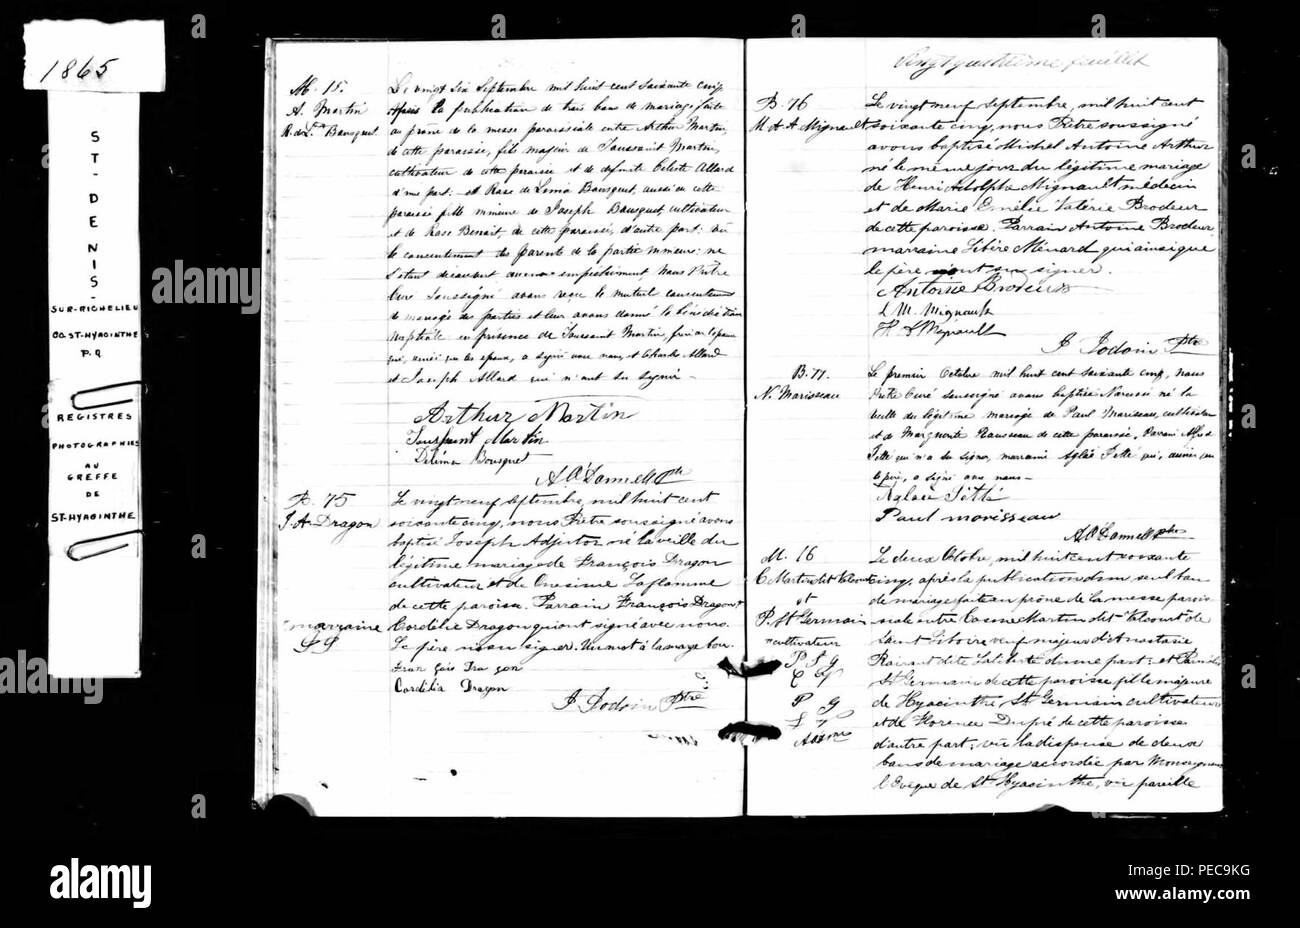 1865
ST-DENIS-
SUR-RICHELIEU
CO. ST-HYACINTHE
P.Q
REGISTRES
PHOTOGRAPHIÉS
AU
GREFFE
DE
ST-HYACINTHE
M. 15.
A. Martin
R. de L. Bousquet
Le vingt six Septembre mil huit cent soixante cinq
après la publication de trois bans de mariage faite
au prône de la messe paroissiale entre Arthur Martin,
de cette paroisse, fils majeur de Toussaint Martin,
cultivateur de cette paroisse et de défunte Celeste Allard
d'une part: et Rose de Lima Bousquet, aussi de cette
paroisse fille mineure de Joseph Bousquet, cultivateur
et de Rose Benoit, de cette paroisse, d'autre part: vu
le consentement des parents de la partie mineure: ne
s'étant découvert aucun empêchement Nous Prêtre
Curé soussigné avons reçu le mutuel consentement
de mariage des parties et leur avons donné la bénédiction
nuptiale en présence de Toussaint Martin, père de l'époux
qui, ainsi que les époux, a signé avec nous, et Charles Allard
et Joseph Allard qui n'ont su signer
Arthur Martin
Toussaint Martin
Delima Bousquet
A O'Donnell Ptre
B. 75
J. A. Dragon
Le vingt neuf septembre, mil huit cent
soixante cinq, nous Prêtre soussigné avons
baptisé Joseph Adjutor né la veille du
légitime mariage de François Dragon
cultivateur et de Onesime Laflamme
de cette paroisse. Parrain François Dragon +
+ marraine
Cordélie Dragon qui ont signé avec nous.
Le père n'a su signer. Un mot à la marge bon.
François Dragon
Cordilia Dragon
J Jodoin Ptre
Vingt quatrième feuillet
B. 76
M. A. A. Mignault
Le vingt neuf septembre, mil huit cent
soixante cinq, nous Prêtre soussigné
avons baptisé Michel Antoine Arthur
né le même jour du légitime mariage
de Henri Adolphe Mignault médecin
et de Marie Emélie Valérie Brodeur
de cette paroisse. Parrain Antoine Brodeur
marraine Libère Ménard qui ainsi que
le père ont su signer.
Antoine Brodeur
L M. Mignault
H A Mignault
J Jodoin Ptre
B. 77.
N. Marisseau
Le premier Octobre mil huit cent soixante cinq, nous
Prêtre Curé soussigné avons baptisé Narcisse né la
veille du légitime mariage de Paul Marisseau, cultivateur
et de Marguerite Rousseau de cette paroisse. Parrain
Jetté qui n'a su signer, marraine Aglaé Jetté qui, ainsi que
le père, a signé avec nous
Aglaée Jetté
Paul morisseau
A O'Donnell Ptre
M. 16
C. Martin dit Valcourt
et
P. St Germain
cultivateur
P S G
P G
Le deux Octobre, mil huit cent soixante
cinq, après la publication d'un seul ban
de mariage faite au prône de la messe parois-
siale entre Cosme Martin dit Valcourt de
Saint Liboire veuf majeur d'Anastasie
d'une part: et
St Germain de cette paroisse fille majeure
de Hyacinthe St Germain cultivateur
et de Florence Dupré de cette paroisse
d'autre part; vu la dispense de deux
bans de mariage accordée par Monseigneur
l'Evêque de St Hyacinthe, vu pareille
alamy
PEC9KG
www.alamy.com